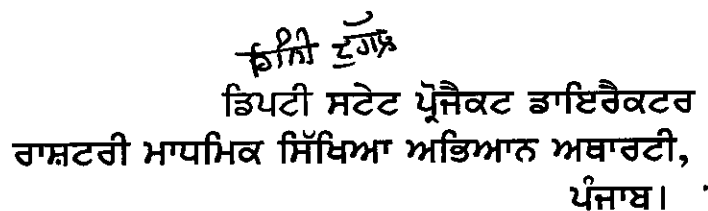 ਡਿਪਟੀ ਸਟੇਟ ਪ੍ਰੋਜੈਕਟ ਡਾਇਰੈਕਟਰ
ਰਾਸ਼ਟਰੀ ਮਾਧਮਿਕ ਸਿੱਖਿਆ ਅਭਿਆਨ ਅਥਾਰਟੀ,
ਪੰਜਾਬ।